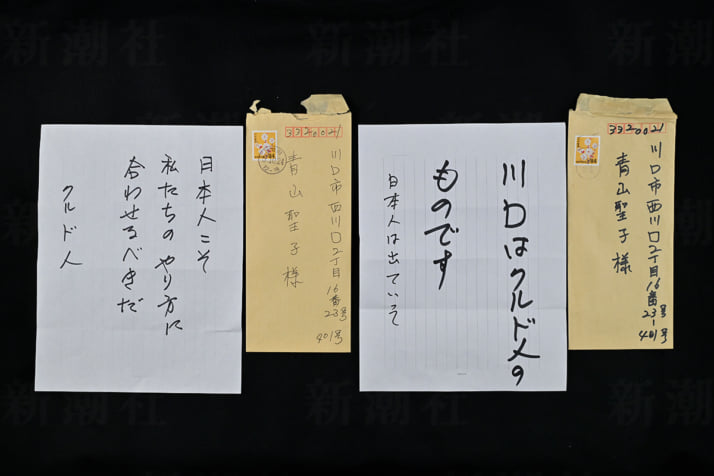 日本人こそ
私たちの やり方に
合わせるべきだ
クルド人
3320021
川口市西川口2丁目16番23号
401号
青山聖子様
川口はクルド人の
ものです
日本人は出ていって
3320021
川口市西川口2丁目16番23号
401号
青山聖子様
新潮社